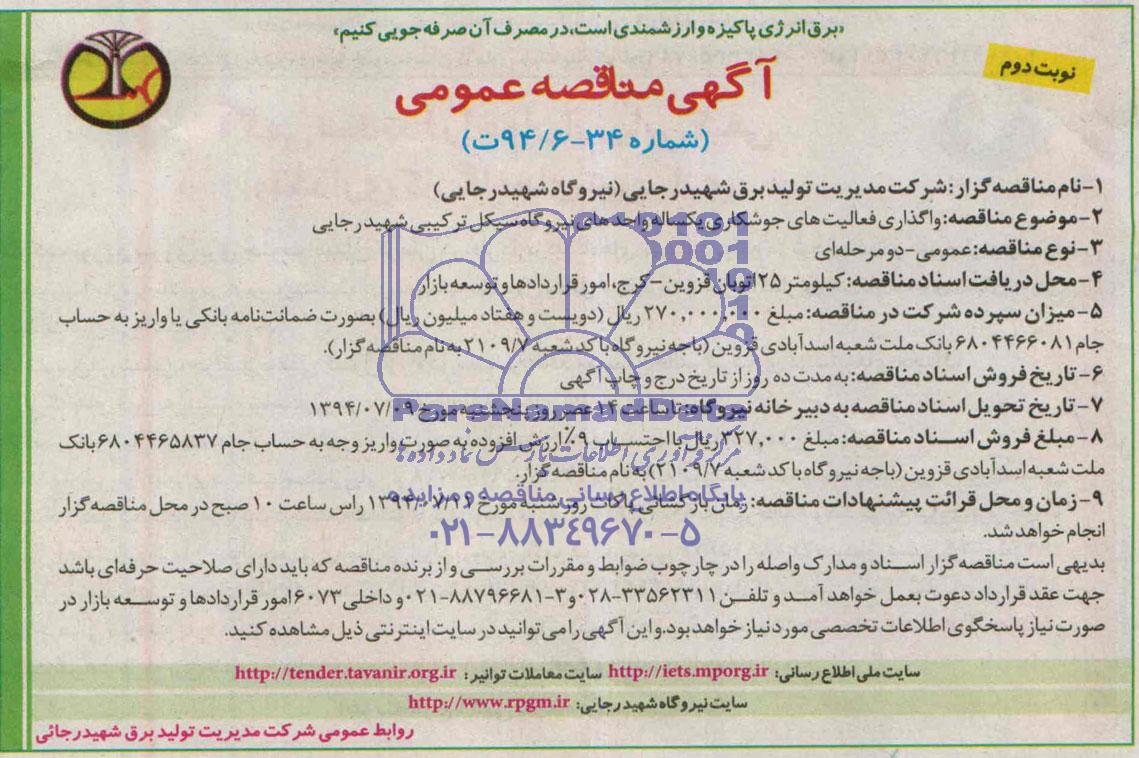 «برق انرژی پاکیزه و ارزشمندی است، در مصرف آن صرفه جویی کنیم»
نوبت دوم
آگهی مناقصه عمومی
(شماره ۳۴-۹۴/۶ت)
۱-نام مناقصه گزار: شرکت مدیریت تولید برق شهید رجایی (نیروگاه شهید رجایی)
۲-موضوع مناقصه: واگذاری فعالیت های جوشکاری یکساله واحدهای نیروگاه سیکل ترکیبی شهید رجایی
۳-نوع مناقصه: عمومی-دو مرحله ای
۴-محل دریافت اسناد مناقصه: کیلومتر ۲۵ اتوبان قزوین-کرج، امور قراردادها و توسعه بازار
۵-میزان سپرده شرکت در مناقصه: مبلغ ۲۷۰,۰۰۰,۰۰۰ ریال (دویست و هفتاد میلیون ریال) بصورت ضمانت نامه بانکی یا واریز به حساب
جام ۶۸۰۴۴۶۶۰۸۱ بانک ملت شعبه اسدآبادی قزوین (باجه نیروگاه با کد شعبه ۲۱۰۹/۷ به نام مناقصه گزار).
۶-تاریخ فروش اسناد مناقصه: به مدت ده روز از تاریخ درج و چاپ آگهی
۷-تاریخ تحویل اسناد مناقصه به دبیرخانه نیروگاه: تا ساعت ۱۴ عصر روز پنجشنبه مورخ ۱۳۹۴/۰۷/۰۹
۸-مبلغ فروش اسناد مناقصه: مبلغ ۳۲۷,۰۰۰ ریال با احتساب ۹٪ ارزش افزوده به صورت واریز وجه به حساب جام ۶۸۰۴۴۶۵۸۳۷ بانک
ملت شعبه اسدآبادی قزوین (باجه نیروگاه با کد شعبه ۲۱۰۹/۷) به نام مناقصه گزار.
۹-زمان و محل قرائت پیشنهادات مناقصه: زمان بازگشائی پاکات روز شنبه مورخ راس ساعت ۱۰ صبح در محل مناقصه گزار
انجام خواهد شد.
بدیهی است مناقصه گزار اسناد و مدارک واصله را در چارچوب ضوابط و مقررات بررسی و از برنده مناقصه که باید دارای صلاحیت حرفه ای باشد
جهت عقد قرارداد دعوت بعمل خواهد آمد و تلفن ۳۳۵۶۲۳۱۱-۰۲۸ و ۳-۸۸۷۹۶۶۸۱-۰۲۱ و داخلی ۶۰۷۳ امور قراردادها و توسعه بازار در
صورت نیاز پاسخگوی اطلاعات تخصصی مورد نیاز خواهد بود. و این آگهی را می توانید در سایت اینترنتی ذیل مشاهده کنید.
سایت ملی اطلاع رسانی: http://iets.mporg.ir سایت معاملات توانیر: http://tender.tavanir.org.ir
سایت نیروگاه شهید رجایی: http://www.rpgm.ir
روابط عمومی شرکت مدیریت تولید برق شهید رجائی
ParsNamadData
مرکز فرآوری اطلاعات پارس نماد داده ها
پایگاه اطلاع رسانی مناقصه و مزایده
۰۲۱-۸۸۳۴۹۶۷۰-۵